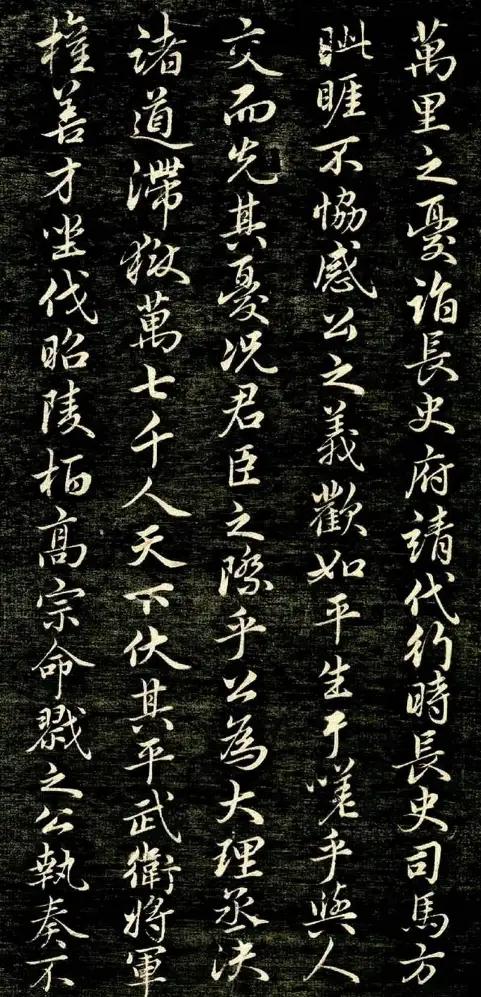 萬里之憂詣長史府請代行時長史司馬方
眦睚不恊感公之義歡如平生于嗟乎與人
交而先其憂况君臣之際乎公為大理丞決
諸道滯獄萬七千人天下伏其平武衛將軍
權善才坐伐昭陵栢高宗命戮之公執奏不